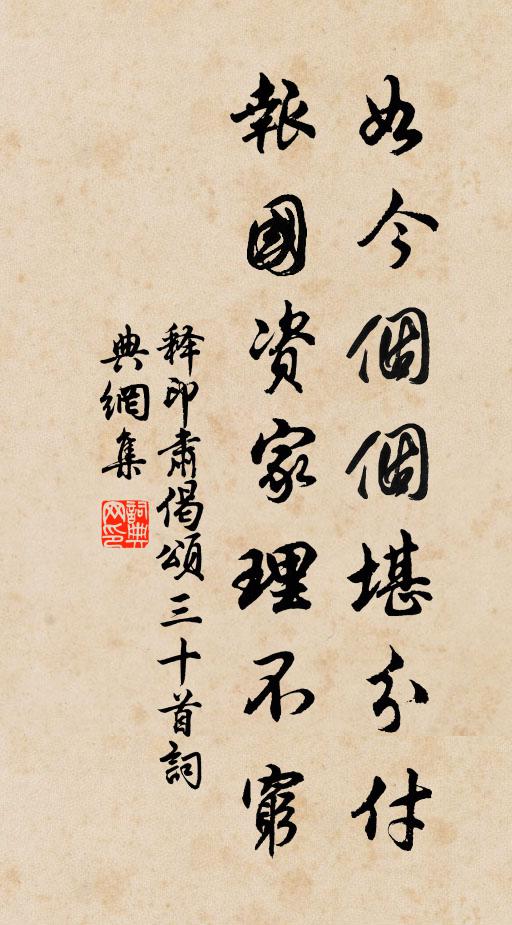 如今個個堪分付
報國資家理不窮
釋印肅偈頌三十首詞
典網集
詞典網印